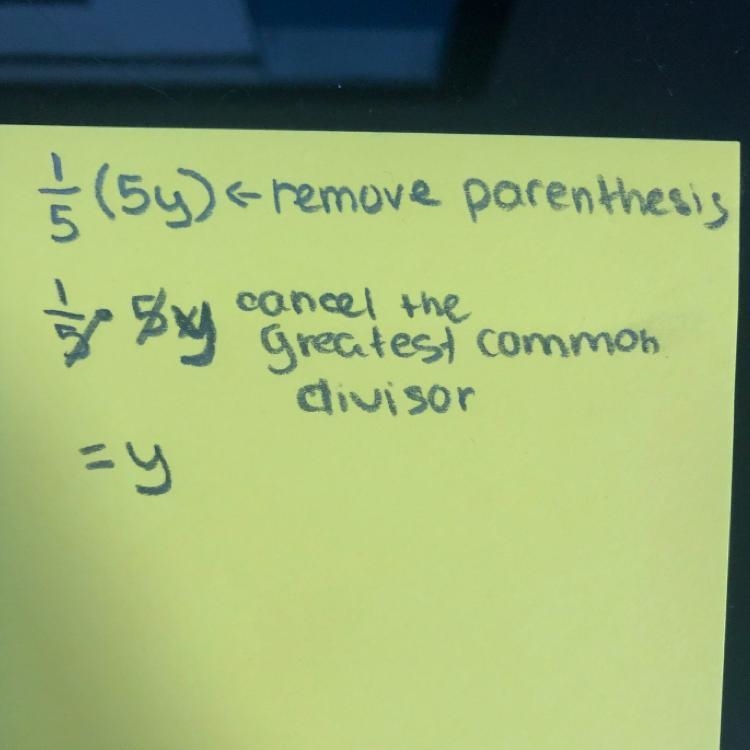 1/5 (5y) ← remove parenthesis
1/5 · 5y cancel the
Greatest common
divisor
= y